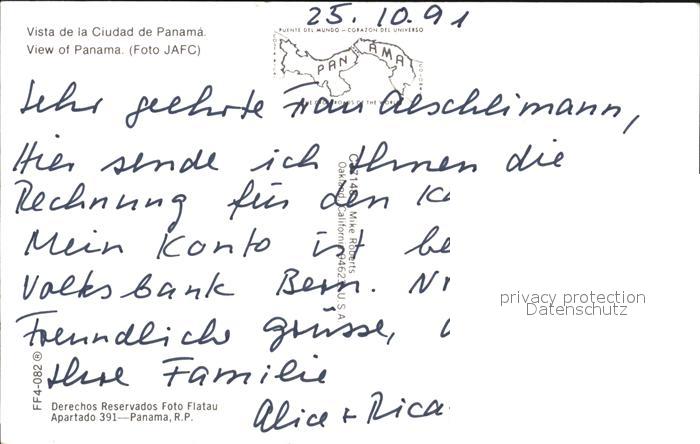 25.10.91
Vista de la Ciudad de Panamá.
View of Panama. (Foto JAFC)
PUENTE DEL MUNDO – CORAZON DEL UNIVERSO
PANAMA
Sehr geehrte Frau Aeschlimann,
Hier sende ich Ihnen die
Rechnung für den
Mein Konto ist
Volksbank Bern.
Freundliche Grüsse,
Ihre Familie
Alice + Rica
Mike Roberts
Oakland, California 94623 U.S.A.
privacy protection
Datenschutz
FF4-082 ®
Derechos Reservados Foto Flatau
Apartado 391—Panama, R.P.